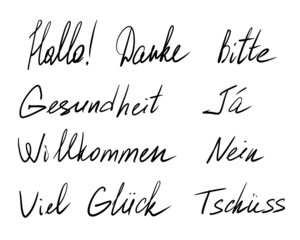 Hallo! Danke Bitte
Gesundheit Já
Willkommen Nein
Viel Glück Tschüss